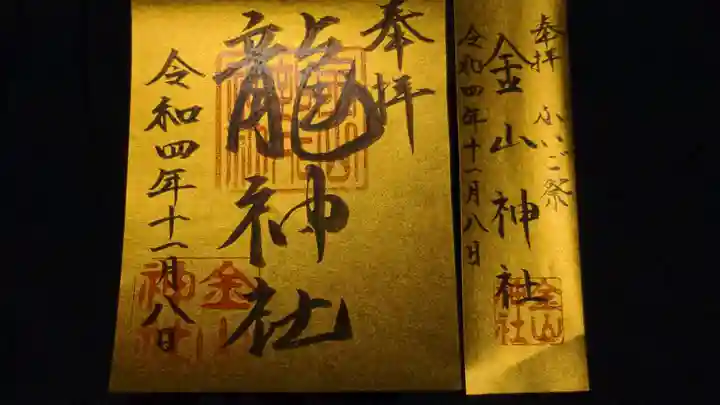 奉拝 ふいご祭
金山神社
令和四年十一月八日
金山
神社
奉拝
龍神社
令和四年十一月八日
金山
神社